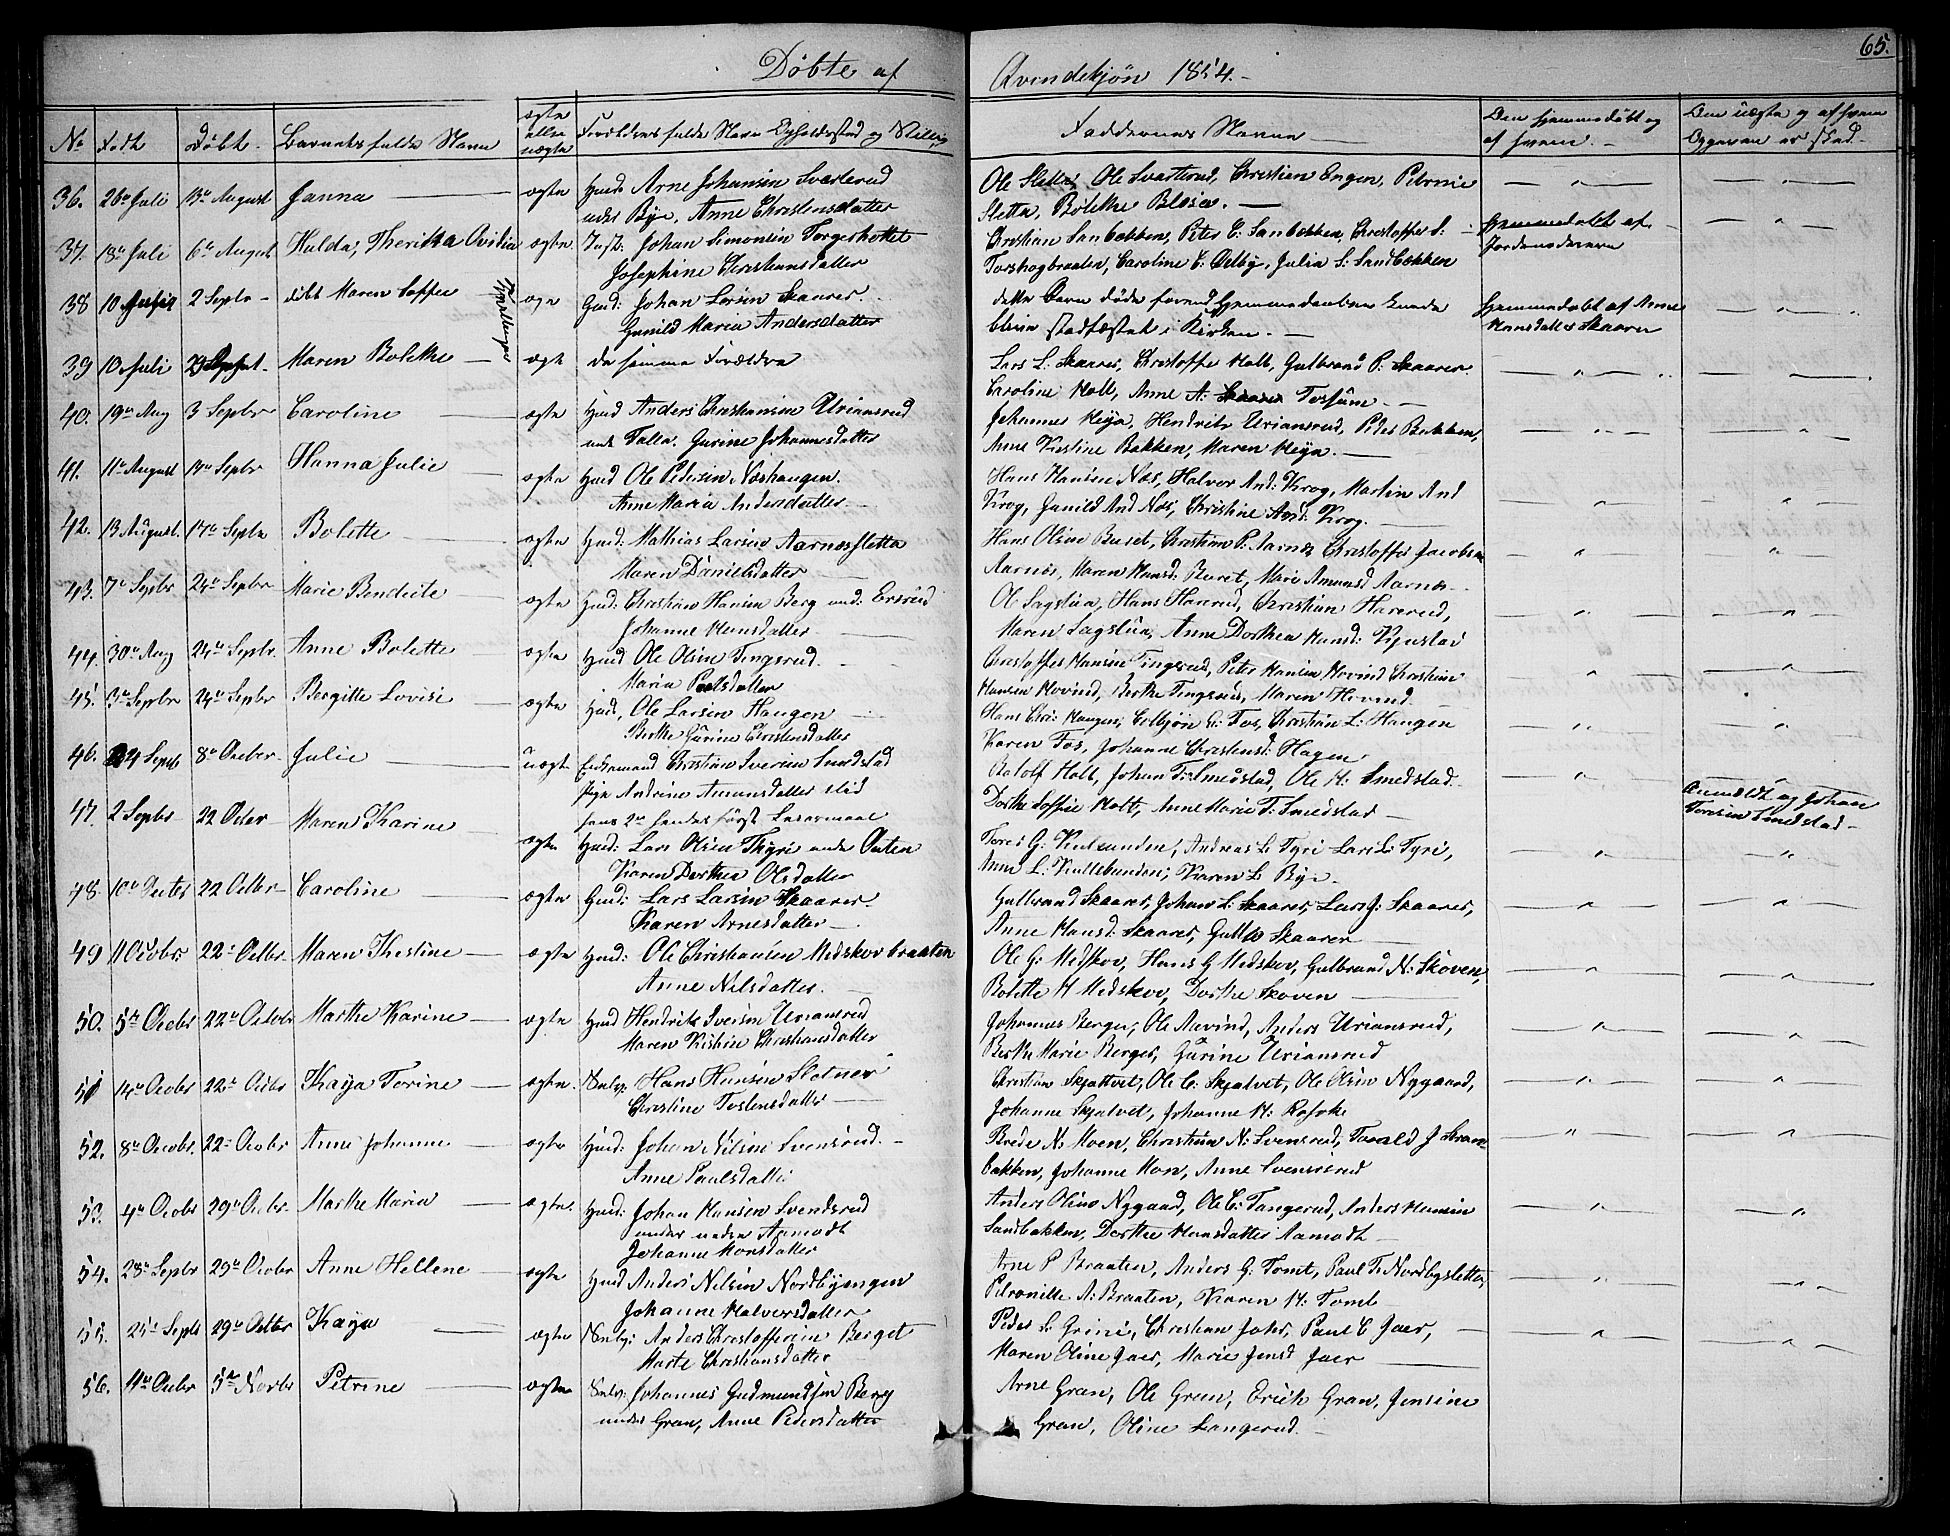 65.
Døbte af Qvindekjøn 1854.
No Født Døbt Barnets fulde Navn ægte eller uægte Forældrenes fulde Navn Opholdssted og Stilling
Faddernes Navne
Den hjemmedøbt og af hvem
Den uægte og af hvem Opgaven er skeed
36. 26de Juli 13de August Janna ægte Husm. Arne Johansen Svarterud
under Bye, Anne Christensdatter
Ole Sletta, Ole Svarterud, Christian Engen, Petronie
Sletta, Bolethe
37. 18de Juli 6te August Hulda, Ovidia ægte Inst: Johan Simensen Torgershottet
Josephine Christiansdatter
Christian Sanbakken, Peter C: Sanbakken, Christoffer S:
Torshogbraaten, Caroline C: Julia S: Sandbækken
Hjemmedøbt af Jordemoderen
38 10 Juli 2 Septbr døbt Maren Soffie Tvillinger ægte Gmd: Johan Larsen Skaarer
Gunild Maria Andersdatter
dette Barn døde forend Hjemmedaaben kunde
blive stadfæstet i Kirken.
Hjemmedøbt af Anne Hansdatter Skaarer
39 10 Juli Maren Bolethe ægte de samme Forældre
Lars L: Skaarer, Christoffer Holt, Gulbrand P: Skaarer
Caroline Holt, Anne A: Tossum
40. 19de Aug 3 Septbr Caroline ægte Husm Anders Christiansen Uriansrud
under Falla, Gurine Johannesdatter
Johannes Heya, Hendrik Uriansrud, Peder Bakken,
Anne Kirstine Bakken, Maren Heya.
41. 11te August 3de Septbr Hanna Julie ægte Husm Ole Pedersen Næshaugen
Anne Maria Andersdatter
Hans Hansen Næs, Halvor And: Krog, Martin And
Krog, Gunild And Næs, Christine And: Krog.
42. 13 August. 17de Septbr Bolette ægte Husm: Mathias Larsen Aarnæsfletta
Maren Danielsdatter
Hans Olsen Buret, Christian P: Aarnæs, Christoffer Jacobsen
Aarnæs, Maren Hansd: Buret, Marie Amunsd Aarnæs
43. 7de Septbr 24de Septbr Marie Bendicte ægte Husm: Christian Hansen Berg und: Ersrud
Johanne Hansdatter
Ol Sagstua, Hans Harerud, Christian Harerud,
Maren Sagstua, Anne Dorthea Hansd:
44. 30te Aug 24de Septbr. Anne Bolette ægte Husm Ole Olsen Tingsrud.
Maria Paalsdatter
Christoffer Hansen Tingsrud, Peter Hansen Hovind Christian
Hansen Hovind, Berthe Tingsrud, Maren Hovind
45. 3de Septbr 24de Septbr Bergitte Lovise ægte Husm, Ole Larsen Haugen
Berthe Gurine Christensdatter
Hans Chri: Haugen, Fos, Christian L: Haugen
Karen Fos, Johanne Christensd: Hagen
46. 24 Septb 8de Octbr Julie uægte Enkemand Christian Iversen Smedstad
Pige Andrine Amunsdatter
hans 2de hendes først Leiermaal
Rolf Holt, Johan T: Smedstad, Ole H: Smedstad
Dorthe Soffie Holt, Anne Marie T: Smedstad
Anmeldt og Johan Toresen Smedstad
47. 2 Septbr 22 Octbr Maren Karine ægte Husm: Lars Olsen Thyri under Outen
Karen Dorthea Olsdatter
Tores G: Andreas L Tyri Lars L: Tyri,
Anne L: Karen L Bye.
48. 10de 22 Octbr Caroline ægte Gmd: Lars Larsen Skaarer
Karen Arnesdatter
Gulbrand Skaarer, Johan L: Skaarer, Lars J: Skaarer,
Anne Hansd: Skaarer, Skaarer
49 11 Octobr: 22de Octbr Maren Kirstine ægte Husm: Ole Christiansen Medskovbraaten
Anne Nilsdatter.
Ole G: Medskov, Hans G Medskov, Gulbrand N: Skoven,
Bolette H Medskov, Dorthe Skoven
50. 5te Octobr 22de Octobr Marthe Karine ægte Husm Hendrik Iversen Uriansrud
Maren Kirstine Christiansdatter
Johannes Berger, Ole Anders Uriansrud,
Berthe Marie Berger, Gurine Uriansrud
51 14de Octobr 22de Octbr Kaja Torine ægte Selv: Hans Hansen Slotner
Christine Tostensdatter
Christian Skjatvet, Ole C: Skjatvet, Ole Olsen Nygaard,
Johanne Skjatvet, Johanne H:
52. 8de Octobr. 22de Octobr Anne Johanne ægte Husm: Johan Nilsen Svensrud.
Anne Paulsdatter
Brede N: Moen, Christian N: Svensrud,
bakken, Johanne Anne Svensrud
53. 4de Octobr 29de Octbr. Marthe Maria ægte Husm: Johan Hansen Svendsrud
under Aamodt
Johanne Hansdatter
Anders Olsen Nygaard, Ole C: Tangerud, Anders Hansen
Sandbakken, Dorthe Hansdatter Aamodt
54. 28de Septbr 29de Octobr Anne Hellene ægte Husm Anders Nilsen Nordbyengen
Johanne Halvorsdatter
Arne P Braaten, Anders G: Tomt, Paul T: Nordbysletta
Petronille A: Braaten, Karen H: Tomt
55. 25de Septb 29de Octbr Kaja ægte Selv: Anders Christoffersen Berget
Marte Christiansdatter
Peder L: Grini, Christian Jahr, Paul C Jaer,
Maren Oline Jaer, Marie Jensd Jaer
56. 11te Octbr 5te Novbr Petrine ægte Selv: Johannes Gudmundsen Berg
under Gran, Anne Pedersdatter
Arne Gran, Ole Gran, Erich Gran, Jensine
Gran, Oline Langerud.